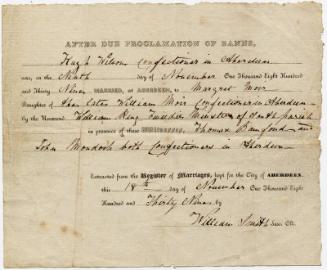 AFTER DUE PROCLAMATION OF BANNS,
Hugh Wilson Confectioner in Aberdeen
was, on the Ninth day of November One Thousand Eight Hundred
and Thirty Nine MARRIED, AT ABERDEEN, to Margaret Moir
Daughter of William Moir Confectioner in Aberdeen
by the Reverend William King Minister of parish
in presence of these WITNESSES, Thomas and
John both Confectioners in Aberdeen
Extracted from the Register of Marriages, kept for the City of ABERDEEN,
this 18th day of November One Thousand Eight
Hundred and Thirty Nine by
William Smith Sess. Clk.